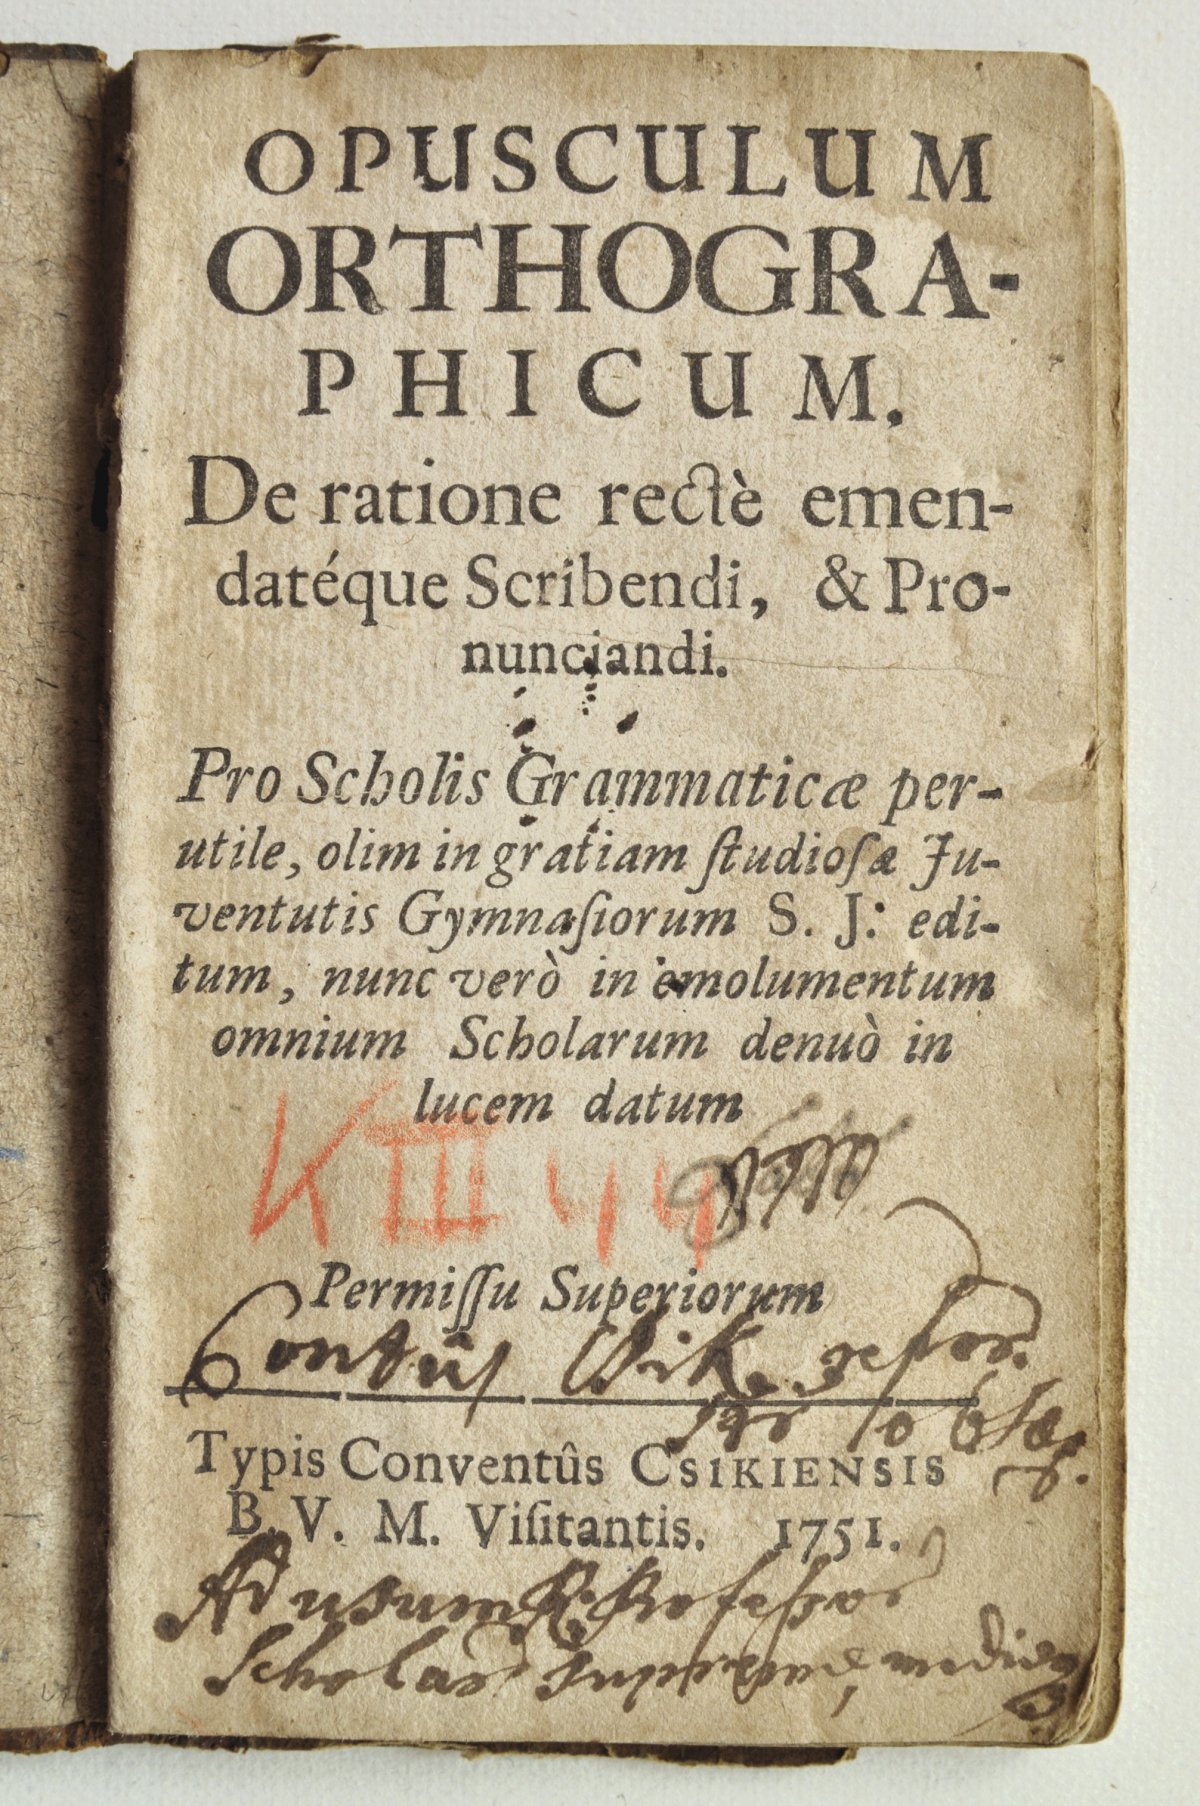 OPUSCULUM
ORTHOGRA-
PHICUM.
De ratione rectè emen-
datéque Scribendi, & Pro-
nunciandi.
Pro Scholis Grammaticæ per-
utile, olim in gratiam ſtudioſæ Ju-
ventutis Gymnaſiorum S. J: edi-
tum, nunc verò in emolumentum
omnium Scholarum denuò in
lucem datum
K III 44
Permiſſu Superiorum
Typis Conventûs CSIKIENSIS
B. V. M. Viſitantis. 1751.
Ad usum